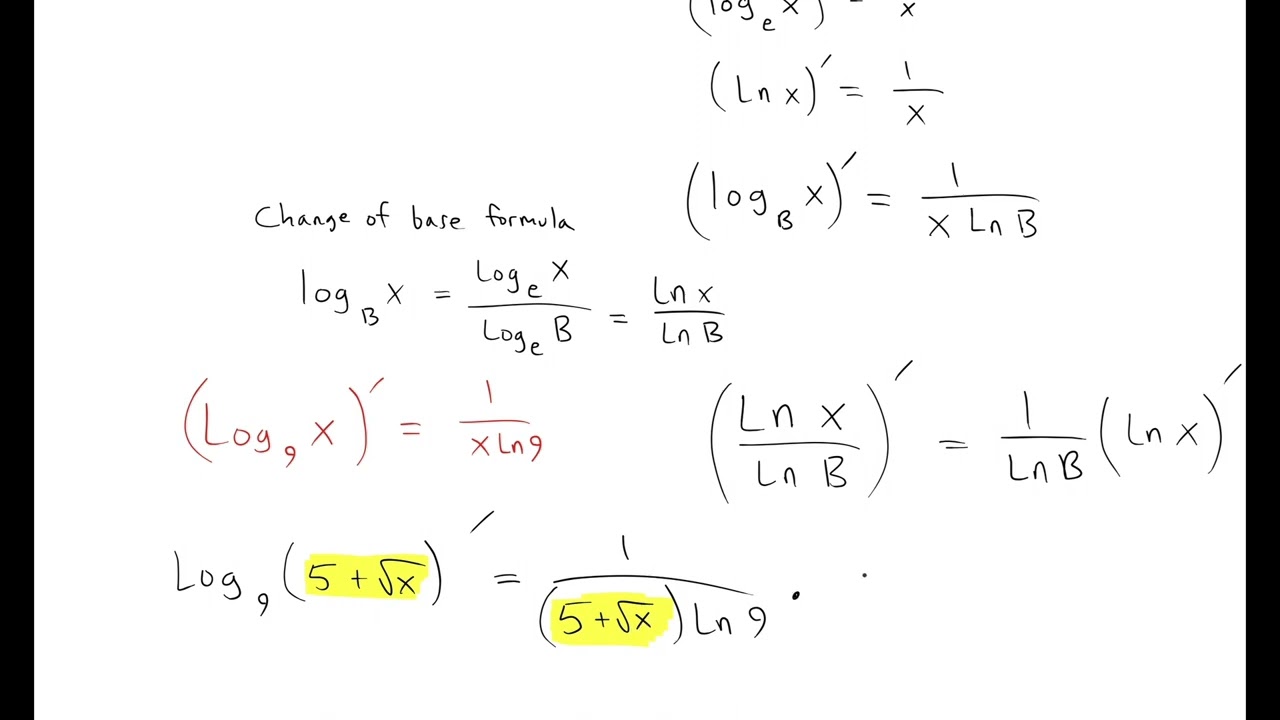 (log_e x)' = 1/x
(Ln x)' = 1/x
(log_B x)' = 1/(x Ln B)
Change of base formula
log_B x = Log_e x / Log_e B = Ln x / Ln B
(Log_9 x)' = 1/(x Ln 9)
(Ln x / Ln B)' = 1/(Ln B) (Ln x)'
Log_9 (5 + √x)' = 1/((5 + √x) Ln 9) ·